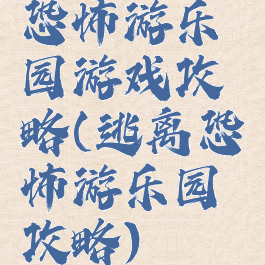 恐怖游乐
园游戏攻
略(逃离恐
怖游乐园
攻略)